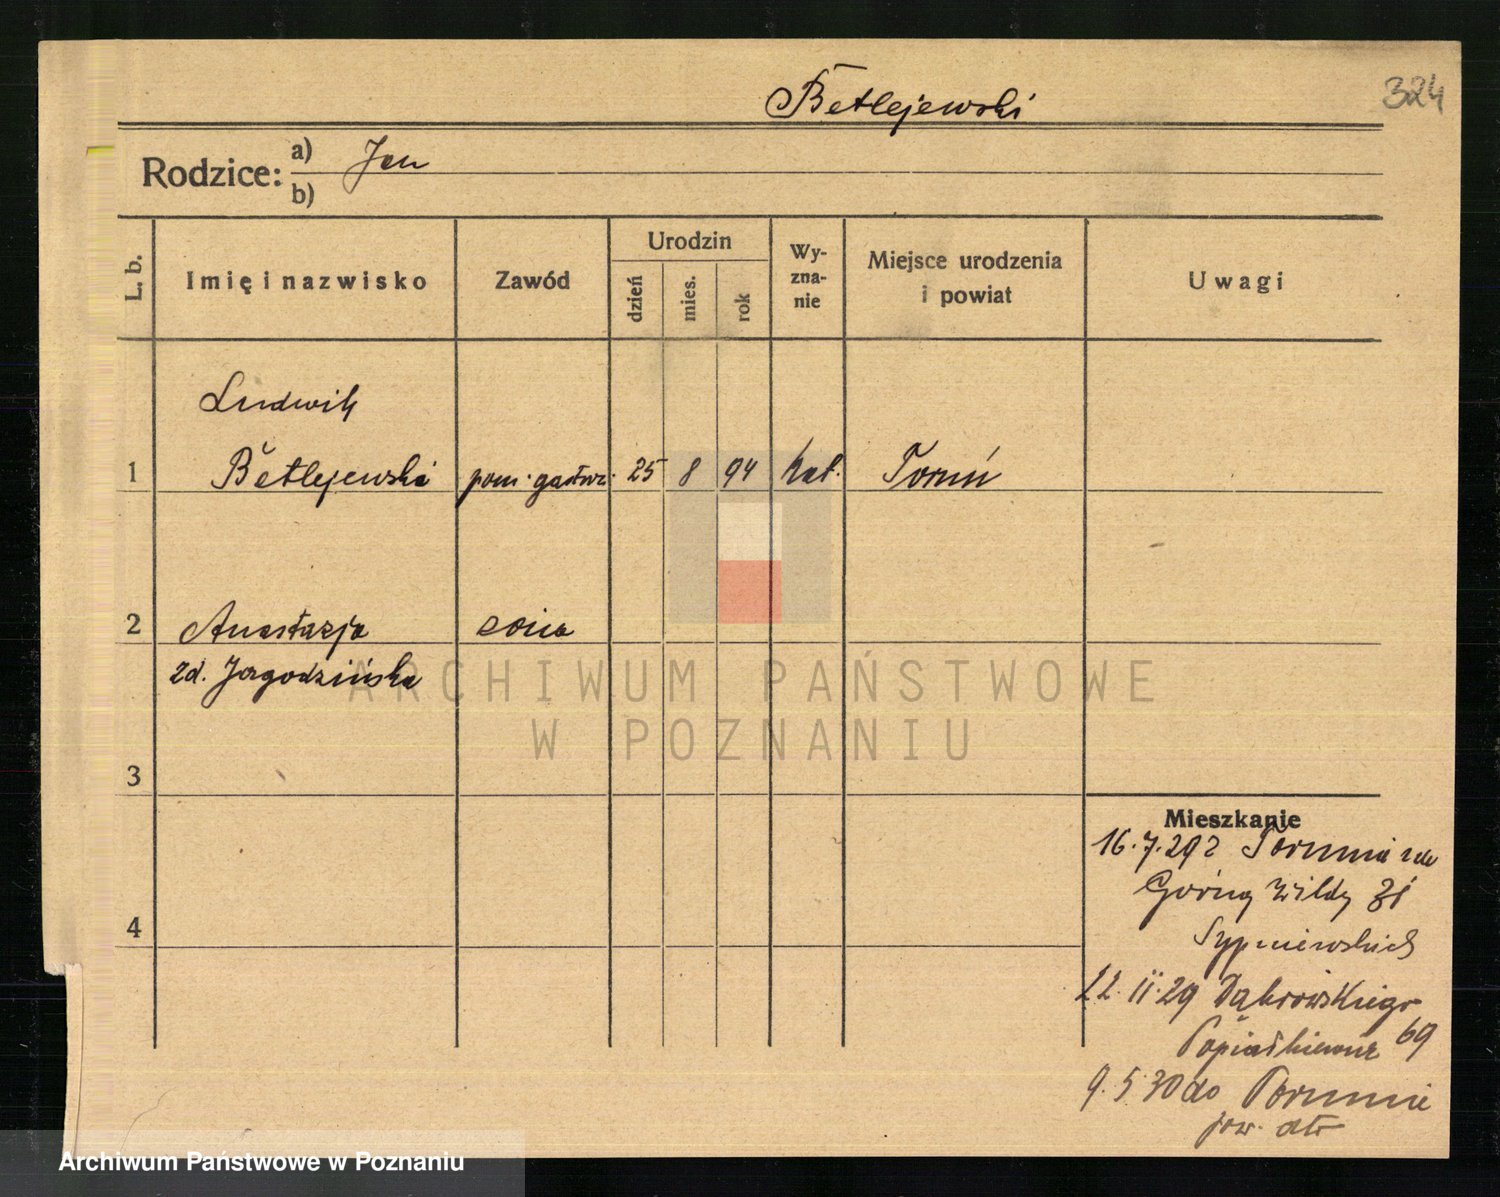 324
Betlejewski
Rodzice: a) Jan
b)
L. b.
Imię i nazwisko
Zawód
Urodzin
dzień
mies.
rok
Wy-
zna-
nie
Miejsce urodzenia
i powiat
Uwagi
Ludwik
1 Betlejewski pom. gastr. 25 8 94 kat. Toruń
2 Anastazja żona
zd. Jagodzińska
ARCHIWUM PAŃSTWOWE
W POZNANIU
3
Mieszkanie
16.7.29 z Torunia
Górną Wildę
4
22.11.29 Dąbrowskiego
69
9.5.30 do Torunia
Archiwum Państwowe w Poznaniu